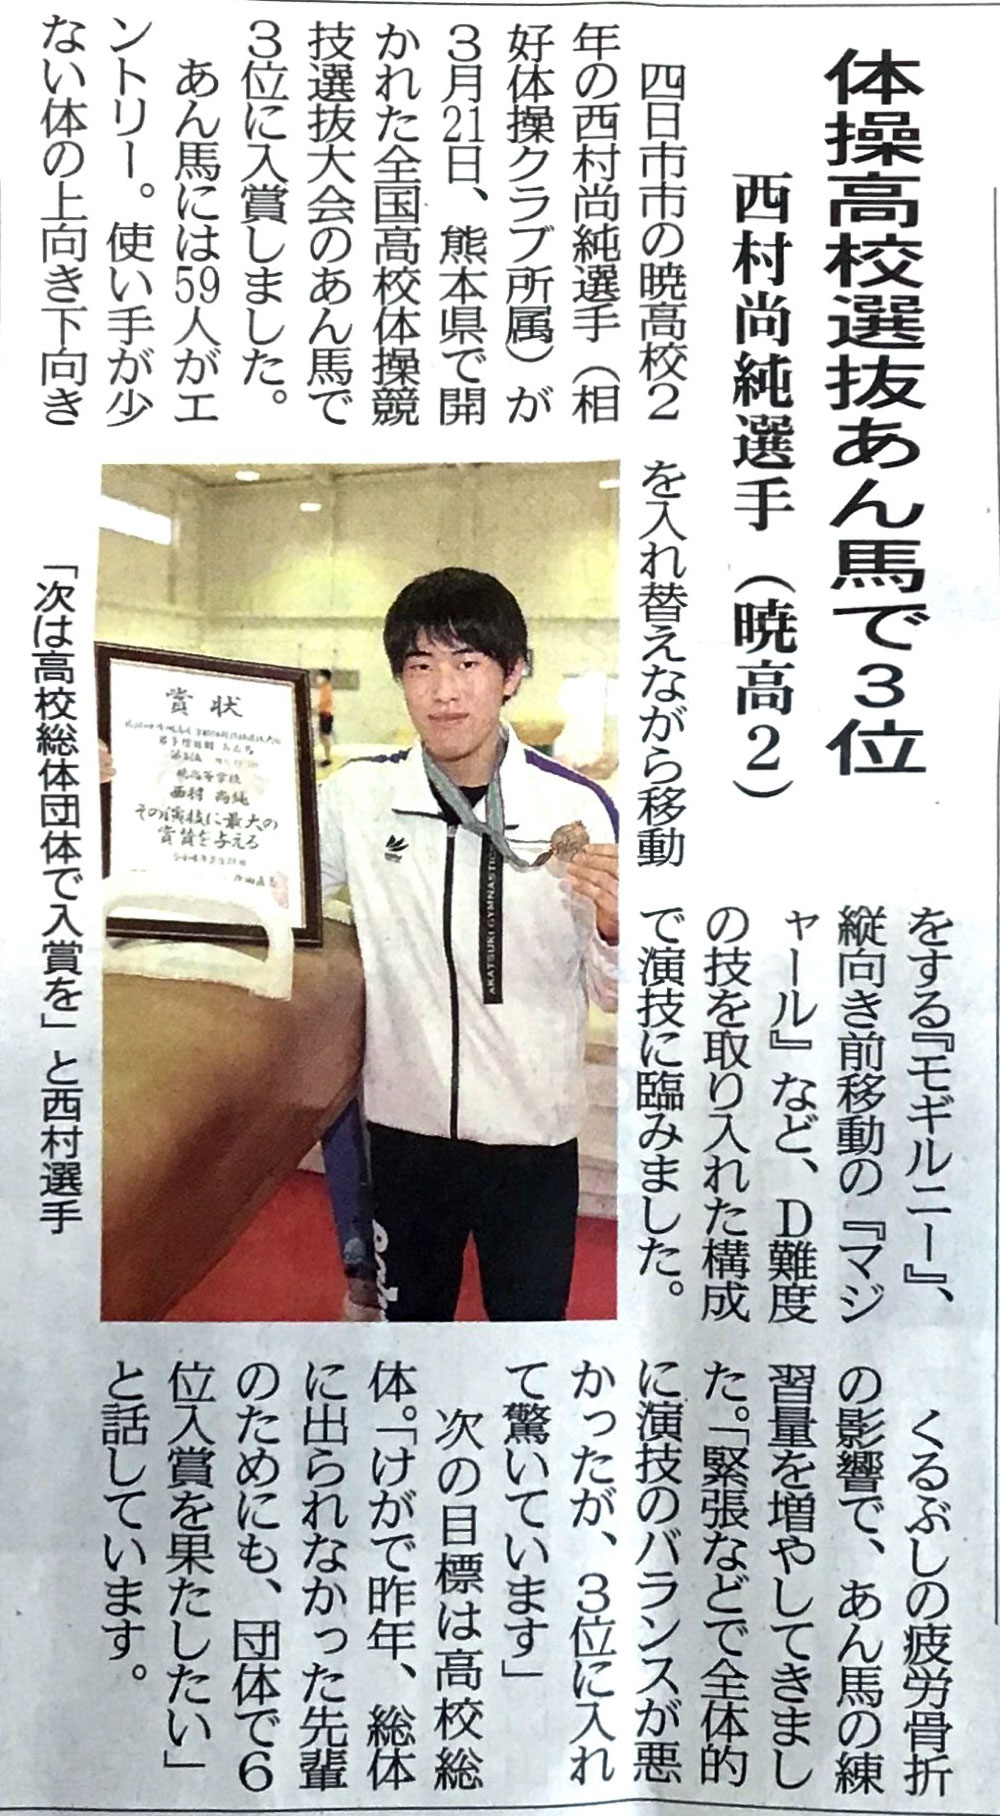 体操高校選抜あん馬で3位
西村尚純選手（暁高2）
四日市市の暁高校2
年の西村尚純選手（相
好体操クラブ所属）が
3月21日、熊本県で開
かれた全国高校体操競
技選抜大会のあん馬で
3位に入賞しました。
あん馬には59人がエ
ントリー。使い手が少
ない体の上向き下向き
を入れ替えながら移動
をする『モギルニー』、
縦向き前移動の『マジ
ャール』など、D難度
の技を取り入れた構成
で演技に臨みました。
くるぶしの疲労骨折
の影響で、あん馬の練
習量を増やしてきまし
た。「緊張などで全体的
に演技のバランスが悪
かったが、3位に入れ
て驚いています」
次の目標は高校総
体。「けがで昨年、総体
に出られなかった先輩
のためにも、団体で6
位入賞を果たしたい」
と話しています。
賞状
暁高等学校
西村 尚純
その演技に最大の
賞賛を与える
AKATSUKI GYMNASTIC
「次は高校総体団体で入賞を」と西村選手